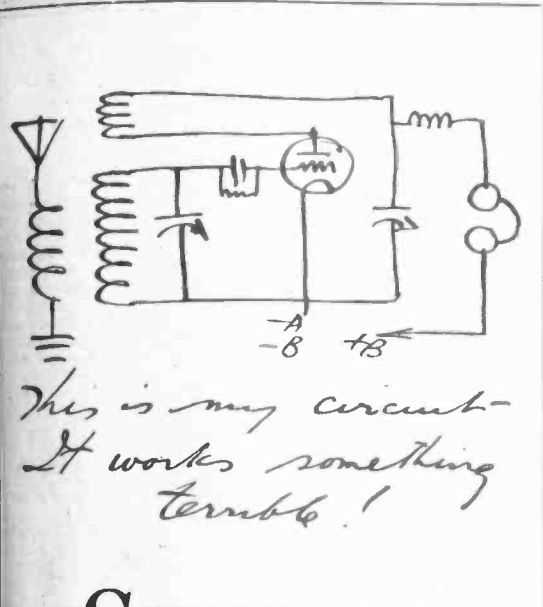 -A
-B
+B
This is my circuit-
It works something
terrible!